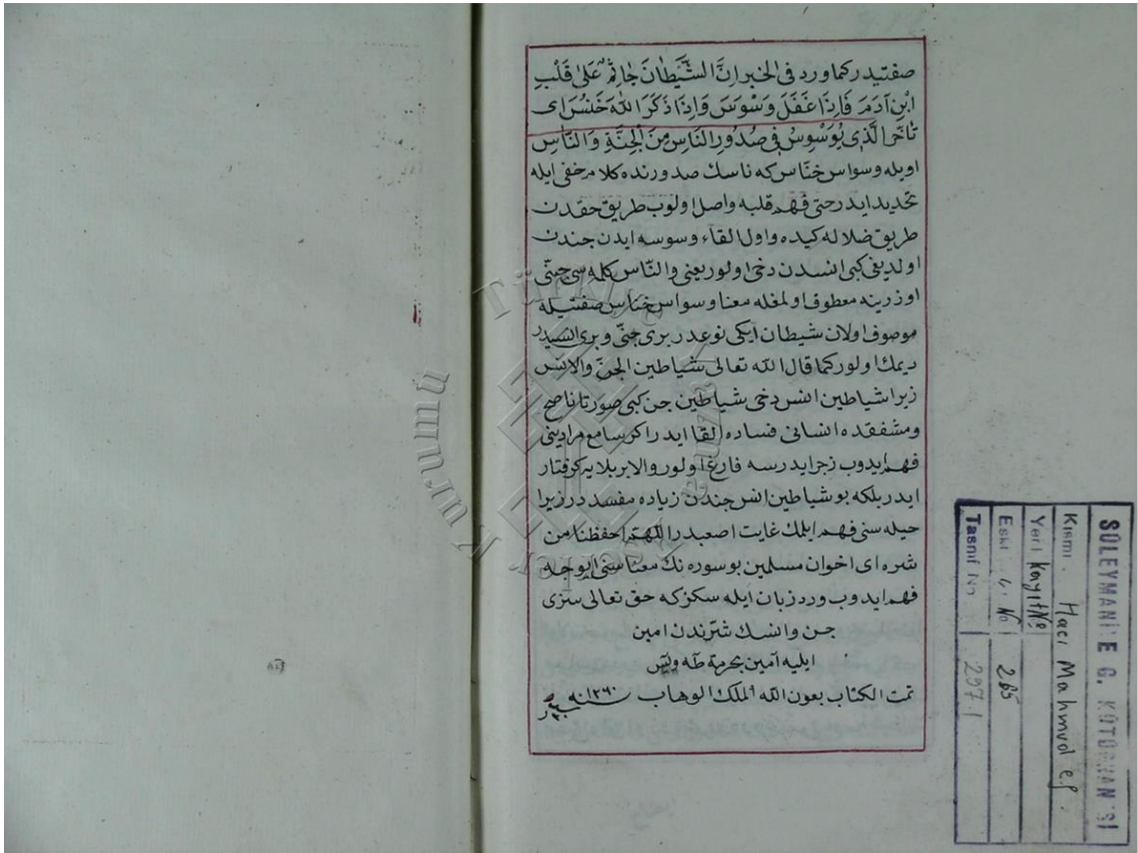 صفتيدر كما ورد فى الخبر اِنَّ الشَّيْطَانَ جَاثِمٌ عَلىٰ قَلْبِ
ابْنِ آدَمَ فَاِذَا غَفَلَ وَسْوَسَ وَاِذَا ذَكَرَ اللّٰهَ خَنَسَ اى
تَأخر الَّذى يُوَسْوِسُ فِى صُدُورِ النَّاسِ مِنَ الْجِنَّةِ وَالنَّاسِ
اويله وسواس خنّاس كه ناسك صدورنده كلام خفى ايله
تحديد ايدر حتى فهم قلبه واصل اولوب طريق حقدن
طريق ضلاله كيده و اول القاء وسوسه ايدن جندن
اولديغى كبى انسدن دخى اولور يعنى والنّاس كلمه سى جنّى
اوزرينه معطوف اولمغله معنا وسواس خناس صفتيله
موصوف اولان شيطان ايكى نوعدر برى جنّى وبرى انسيدر
ديمك اولور كما قال اللّٰه تعالى شياطين الجنّ والانس
زيرا شياطين انس دخى شياطين جن كبى صورتا ناصح
ومشفقده انسانى فساده القا ايدر اكر سامع مرادينى
فهم ايدوب زجر ايدرسه فارغ اولور والا بر بلايه كرفتار
ايدر بلكه بو شياطين انس جندن زياده مفسددر زيرا
حيله سنى فهم ايلمك غايت اصعبدر اللّهم احفظنا من
شره اى اخوان مسلمين بو سوره نك معناسنى بو وجه له
فهم ايدوب ورد زبان ايله سكز كه حق تعالى سزى
جن وانسك شرندن امين
ايليه آمين بحرمة طه ويس
تمت الكتاب بعون اللّٰه الملك الوهاب سنه ١٢٦٠
SÜLEYMANİYE G. KÜTÜPHANESİ
Kısmı: Hacı Mahmud ef.
Yeri Kayıt No
Eski No 265
Tasnif No 297.1
Türkiye Yazma Eserler Kurumu